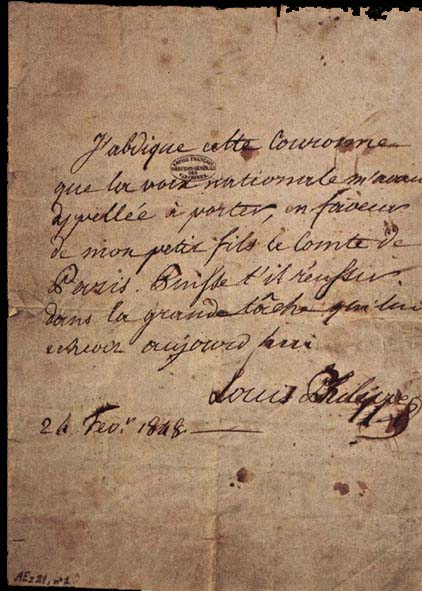 J'abdique cette Couronne
EMPIRE FRANÇAIS
DIRECTION GÉNÉRALE
DES
ARCHIVES
que la voix nationale m'avait
appellée à porter, en faveur
de mon petit fils le Comte de
Paris. Puisse t'il réussir
dans la grande tâche qui lui
echeoit aujourd'hui.
Louis Philippe
24 Fevr. 1848
AE I 21, nº 1